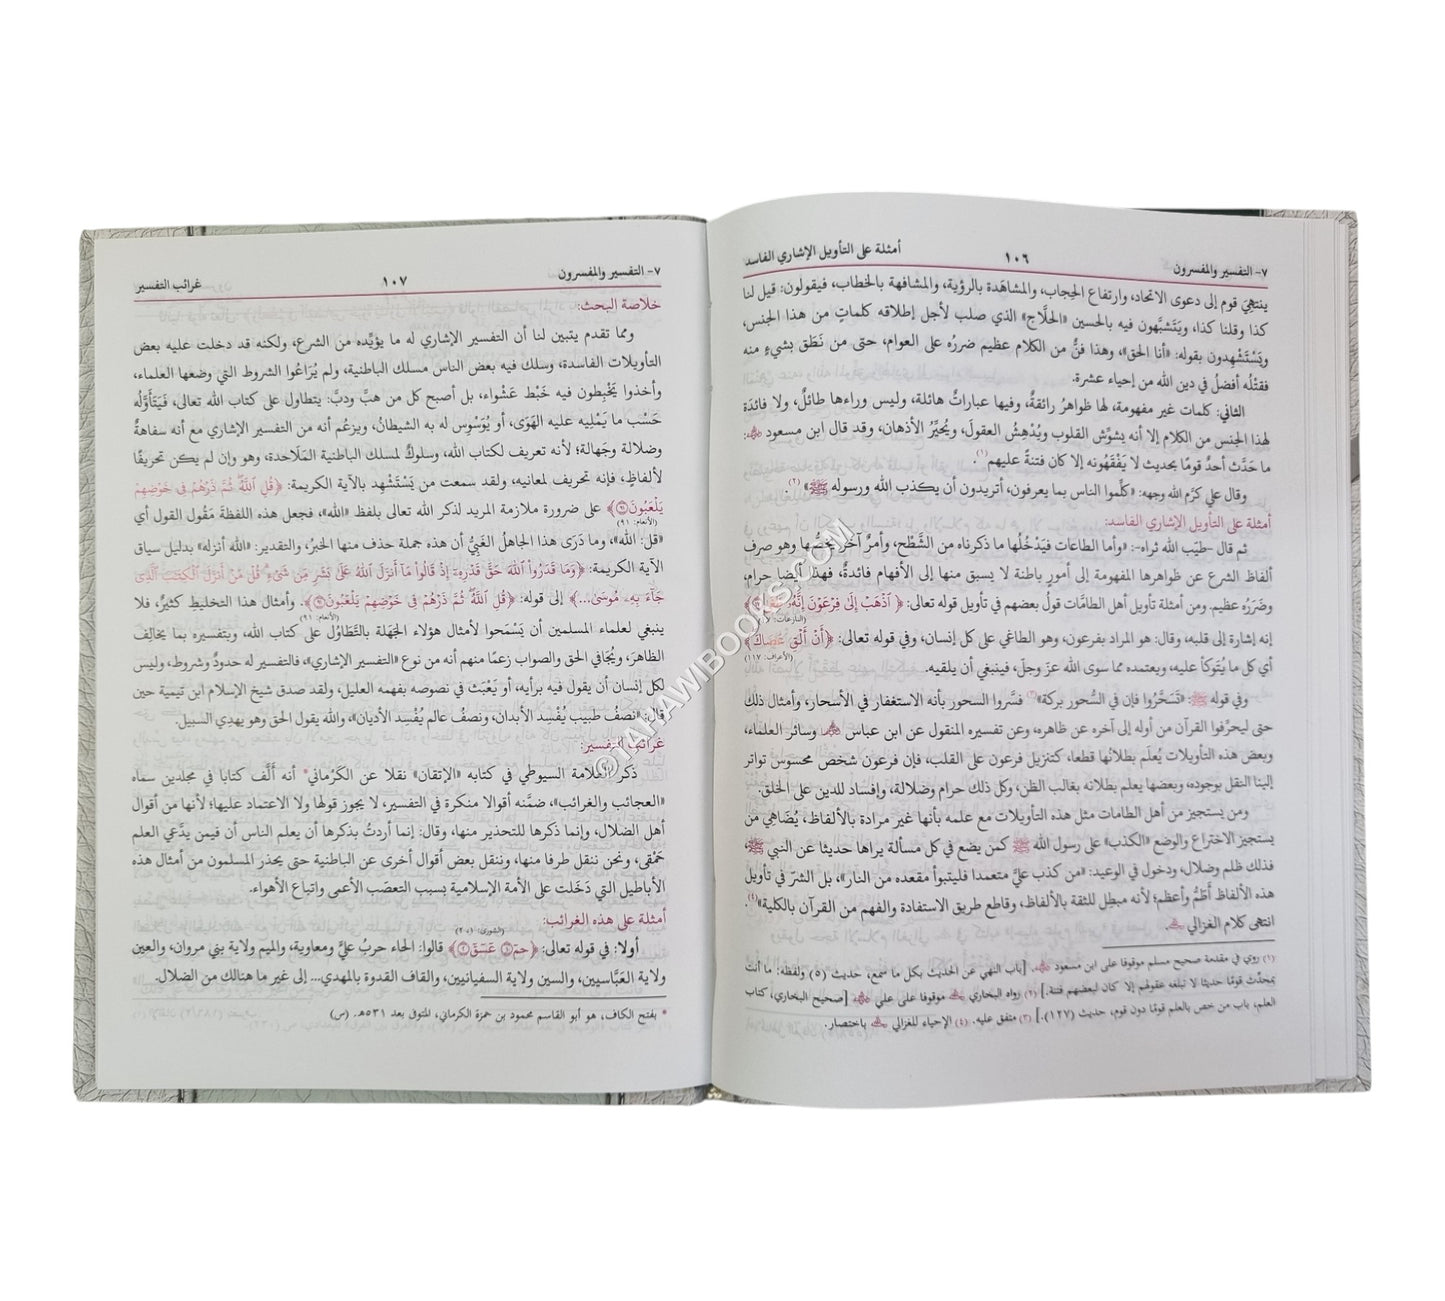 ٧- التفسير والمفسرون ١٠٦ أمثلة على التأويل الإشاري الفاسد
ينتهِيَ قوم إلى دعوى الاتحاد، وارتفاع الحِجاب، والمشاهَدة بالرؤية، والمشافهة بالخطاب، فيقولون: قيل لنا
كذا وقلنا كذا، ويَتَشبَّهون فيه بالحسين «الحلَّاج» الذي صلب لأجل إطلاقه كلماتٍ من هذا الجنس،
ويَسْتَشْهِدون بقوله: «أنا الحق»، وهذا فنٌّ من الكلام عظيم ضررُه على العوام، حتى من نَطَق بشيءٍ منه
فقتْلُه أفضلُ في دين الله من إحياء عشرة.
الثاني: كلمات غير مفهومة، لها ظواهرُ رائقةٌ، وفيها عباراتٌ هائلة، وليس وراءها طائلٌ، ولا فائدة
لهذا الجنس من الكلام إلا أنه يشوِّش القلوب ويُدْهِشُ العقولَ، ويُحيِّرُ الأذهان، وقد قال ابن مسعود ﷺ:
ما حَدَّث أحدٌ قومًا بحديث لا يَفْقَهُونه إلا كان فتنةً عليهم(١).
وقال علي كرَّم الله وجهه: «كلِّموا الناس بما يعرفون، أتريدون أن يكذب الله ورسوله ﷺ»(٢).
أمثلة على التأويل الإشاري الفاسد:
ثم قال -طيّب الله ثراه-: «وأما الطاعات فيَدْخُلُها ما ذكرناه من الشَّطْح، وأمرٌ آخر يخصُّها وهو صرف
ألفاظ الشرع عن ظواهرها المفهومة إلى أمورٍ باطنة لا يسبق منها إلى الأفهام فائدةٌ، فهذا أيضا حرام،
وضَرَره عظيم. ومن أمثلة تأويل أهل الطامَّات قولُ بعضهم في تأويل قوله تعالى: ﴿ٱذْهَبْ إِلَىٰ فِرْعَوْنَ إِنَّهُۥ
(النازعات:
إنه إشارة إلى قلبه، وقال: هو المراد بفرعون، وهو الطاغي على كل إنسان، وفي قوله تعالى: ﴿أَنْ أَلْقِ عَصَاكَ﴾
(الأعراف: ١١٧)
أي كل ما يُتَوكأ عليه، ويعتمده مما سوى الله عزَ وجلَ، فينبغي أن يلقيه.
وفي قوله ﷺ: «تَسَحَّرُوا فإن في السُّحور بركة»(٣) فسَّروا السحور بأنه الاستغفار في الأسحار، وأمثال ذلك
حتى ليحرِّفوا القرآن من أوله إلى آخره عن ظاهره، وعن تفسيره المنقول عن ابن عباس وسائر العلماء،
وبعض هذه التأويلات يُعلَم بطلانُها قطعا، كتنزيل فرعون على القلب، فإن فرعون شخصٌ محسوسٌ تواتر
إلينا النقل بوجوده، وبعضها يعلم بطلانه بغالب الظن، وكل ذلك حرام وضلالة، وإفساد للدين على الخلق.
ومن يستجيز من أهل الطامات مثل هذه التأويلات مع علمه بأنها غير مرادة بالألفاظ، يُضَاهِي من
يستجيز الاختراع والوضع «الكذب» على رسول الله ﷺ كمن يضع في كل مسألة يراها حديثا عن النبي ﷺ،
فذلك ظلم وضلال، ودخول في الوعيد: «من كذب عليَّ متعمدا فليتبوأ مقعده من النار»، بل الشرّ في تأويل
هذه الألفاظ أَطَمُّ وأعظم؛ لأنه مبطِل للثقة بالألفاظ، وقاطع طريق الاستفادة والفهم من القرآن بالكلية»(٤).
انتهى كلام الغزالي
(١) روي في مقدمة صحيح مسلم موقوفا على ابن مسعود. [باب النهي عن الحديث بكل ما سمع، حديث (٥) ولفظه: ما أنت
بمحدِّث قومًا حديثا لا تبلغه عقولهم إلا كان لبعضهم فتنة.] (٢) رواه البخاري موقوفا على علي [صحيح البخاري، كتاب
العلم، باب من خص بالعلم قومًا دون قوم، حديث (١٢٧).] (٣) متفق عليه. (٤) الإحياء للغزالي باختصار.
٧- التفسير والمفسرون ١٠٧ غرائب التفسير
خلاصة البحث:
ومما تقدم يتبين لنا أن التفسير الإشاري له ما يؤيِّده من الشرع، ولكنه قد دخلت عليه بعض
التأويلات الفاسدة، وسلك فيه بعض الناس مسلك الباطنية، ولم يُرَاعُوا الشروط التي وضعها العلماء،
وأخذوا يَخْبِطون فيه خَبْط عَشْواء، بل أصبح كل من هبَّ ودبَّ: يتطاول على كتاب الله تعالى، فيَتَأوَّلُه
حَسْب ما يَمْلِيه عليه الهَوَى، أو يُوَسْوِس له به الشيطانُ، ويزعُم أنه من التفسير الإشاري مع أنه سفاهةٌ
وضلالة وجَهالة؛ لأنه تعريف لكتاب الله، وسلوكٌ لمسلك الباطنية المَلَاحدة، وهو وإن لم يكن تحريفًا
لألفاظٍ، فإنه تحريف لمعانيه، ولقد سمعت من يَسْتَشْهد بالآية الكريمة: ﴿قُلِ ٱللَّهُ ثُمَّ ذَرْهُمْ فِى خَوْضِهِمْ
يَلْعَبُونَ ۝٩١﴾ على ضرورة ملازمة المريد لذكر الله تعالى بلفظ «الله»، فجعل هذه اللفظةَ مَقُول القول أي
(الأنعام: ٩١)
«قل: الله»، وما دَرَى هذا الجاهلُ الغَبِيُّ أن هذه جملة حذف منها الخبرُ، والتقدير: «الله أنزله» بدليل سياق
الآية الكريمة: ﴿وَمَا قَدَرُوا۟ ٱللَّهَ حَقَّ قَدْرِهِۦٓ إِذْ قَالُوا۟ مَآ أَنزَلَ ٱللَّهُ عَلَىٰ بَشَرٍ مِّن شَىْءٍ قُلْ مَنْ أَنزَلَ ٱلْكِتَٰبَ ٱلَّذِى
جَآءَ بِهِۦ مُوسَىٰ...﴾ إلى قوله: ﴿قُلِ ٱللَّهُ ثُمَّ ذَرْهُمْ فِى خَوْضِهِمْ يَلْعَبُونَ ۝٩١﴾. وأمثال هذا التخليطِ كثيرٌ، فلا
(الأنعام: ٩١)
ينبغي لعلماء المسلمين أن يَسْمَحوا لأمثال هؤلاء الجَهَلة بالتَّطاوُل على كتاب الله، وبتفسيره بما يخالِف
الظاهرَ، ويُجَافي الحق والصواب زعمًا منهم أنه من نوع «التفسير الإشاري»، فالتفسير له حدودٌ وشروط، وليس
لكل إنسان أن يقول فيه برأيه، أو يَعْبَث في نصوصه بفهمه العليل، ولقد صدق شيخ الإسلام ابن تيمية حين
قال: «نصفُ طَبيب يُفْسِد الأبدان، ونصفُ عالم يُفْسِد الأديان»، والله يقول الحق وهو يهدِي السبيل.
غرائب التفسير:
ذكر العلامة السيوطي في كتابه «الإتقان» نقلا عن الكَرْماني* أنه ألَّف كتابا في مجلدين سماه
«العجائب والغرائب»، ضمَّنه أقوالا منكرة في التفسير، لا يجوز قولها ولا الاعتماد عليها؛ لأنها من أقوال
أهل الضلال، وإنما ذكرها للتحذير منها، وقال: إنما أردتُ بذكرها أن يعلم الناس أن فيمن يدَّعي العلم
حَمْقى، ونحن ننقل طرفا منها، وننقل بعض أقوال أخرى عن الباطنية حتى يحذر المسلمون من أمثال هذه
الأباطيل التي دَخَلت على الأمة الإسلامية بسبب التعصّب الأعمى واتباع الأهواء.
أمثلة على هذه الغرائب:
(الشورى: ١-٢)
أولا: في قوله تعالى: ﴿حمٓ ۝١ عٓسٓقٓ ۝٢﴾ قالوا: الحاء حربُ عليٍّ ومعاوية، والميم ولاية بني مروان، والعين
ولاية العَبَّاسيين، والسين ولاية السفيانيين، والقاف القدوة بالمهدي... إلى غير ما هنالك من الضلال.
* بفتح الكاف، هو أبو القاسم محمود بن حمزة الكرماني، المتوفى بعد ٥٣١هـ. (س)
©TAHAWIBOOKS.COM